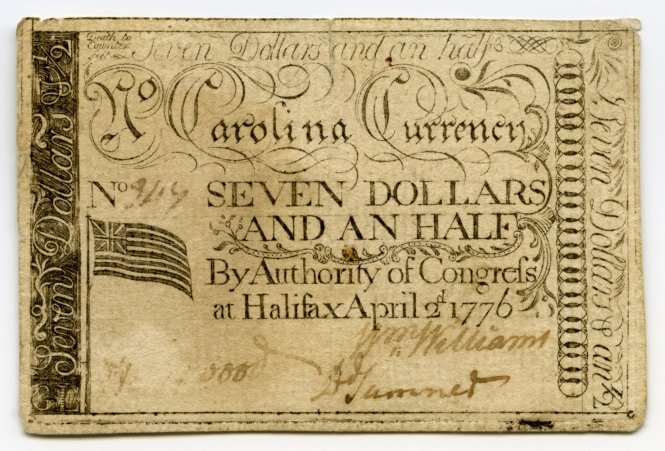 Death to
Counter
feit
Seven Dollars and an half
No Carolina Currency
No 347
SEVEN DOLLARS
AND AN HALF
By Authority of Congreſs
at Halifax April 2d 1776
Wm Williams
J Sumner
Seven Dollars & 1/2
Seven Dollars & an 1/2